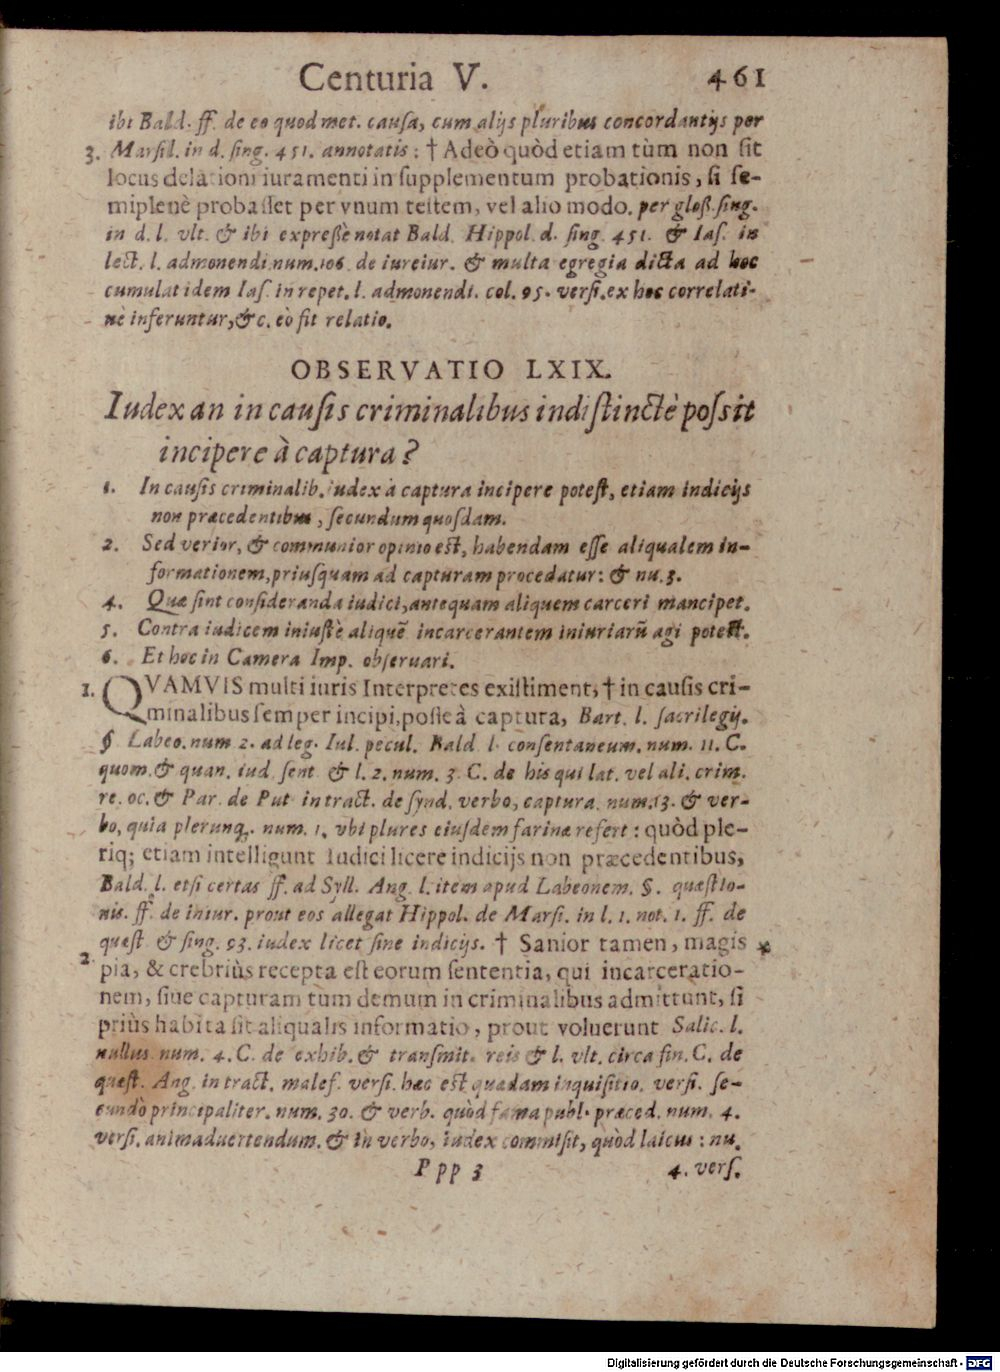 Centuria V. 461
ibi Bald. ff. de eo quod met. cauſa, cum alijs pluribus concordantijs per
3. Marſil. in d. ſing. 451. annotatis: † Adeò quòd etiam tùm non ſit
locus delationi iuramenti in ſupplementum probationis, ſi ſe-
miplenè probaſſet per vnum teſtem, vel alio modo. per gloß. ſing.
in d. l. vlt. & ibi expreßè notat Bald. Hippol. d. ſing. 451. & Iaſ. in
lect. l. admonendi. num. 106. de iureiur. & multa egregia dicta ad hoc
cumulat idem Iaſ. in repet. l. admonendi. col. 95. verſi. ex hoc correlati-
nè inferuntur, &c. eò fit relatio.
OBSERVATIO LXIX.
Iudex an in cauſis criminalibus indiſtinctè poſsit
incipere à captura?
1. In cauſis criminalib. iudex à captura incipere poteſt, etiam indicijs
non præcedentibus, ſecundum quoſdam.
2. Sed verior, & communior opinio eſt, habendam eſſe aliqualem in-
formationem, priuſquam ad capturam procedatur: & nu. 3.
4. Quæ ſint conſideranda iudici, antequam aliquem carceri mancipet.
5. Contra iudicem iniuſtè aliquē incarcerantem iniuriarū agi poteſt.
6. Et hoc in Camera Imp. obſeruari.
1. QVAMVIS multi iuris Interpretes exiſtiment, † in cauſis cri-
minalibus ſemper incipi, poſſe à captura, Bart. l. ſacrilegij.
§. Labeo. num 2. ad leg. Iul. pecul. Bald. l. conſentaneum. num. 11. C.
quom. & quan. iud. ſent. & l. 2. num. 3. C. de his qui lat. vel ali. crim.
re. oc. & Par. de Put. in tract. de ſynd. verbo, captura. num. 13. & ver-
bo, quia plerunq;. num. 1, vbi plures eiuſdem farinæ refert: quòd ple-
riq; etiam intelligunt Iudici licere indicijs non præcedentibus,
Bald. l. etſi certas ff. ad Syll. Ang. l. item apud Labeonem. §. quæſtio-
nis. ff. de iniur. prout eos allegat Hippol. de Marſi. in l. 1. not. 1. ff. de
quæſt. & ſing. 93. iudex licet ſine indicijs. † Sanior tamen, magis
2. pia, & crebriùs recepta eſt eorum ſententia, qui incarceratio-
nem, ſiue capturam tùm demum in criminalibus admittunt, ſi
priùs habita ſit aliqualis informatio, prout voluerunt Salic. l.
nullus. num. 4. C. de exhib. & tranſmit. reis & l. vlt. circa fin. C. de
quæſt. Ang. in tract. malef. verſi. hæc eſt quædam inquiſitio. verſi. ſe-
cundò principaliter. num. 30. & verb. quòd fama publ. præced. num. 4.
verſi. animaduertendum. & in verbo, iudex commiſit, quòd laicus: nu.
P pp 3 4. verſ.
Digitalisierung gefördert durch die Deutsche Forschungsgemeinschaft - DFG